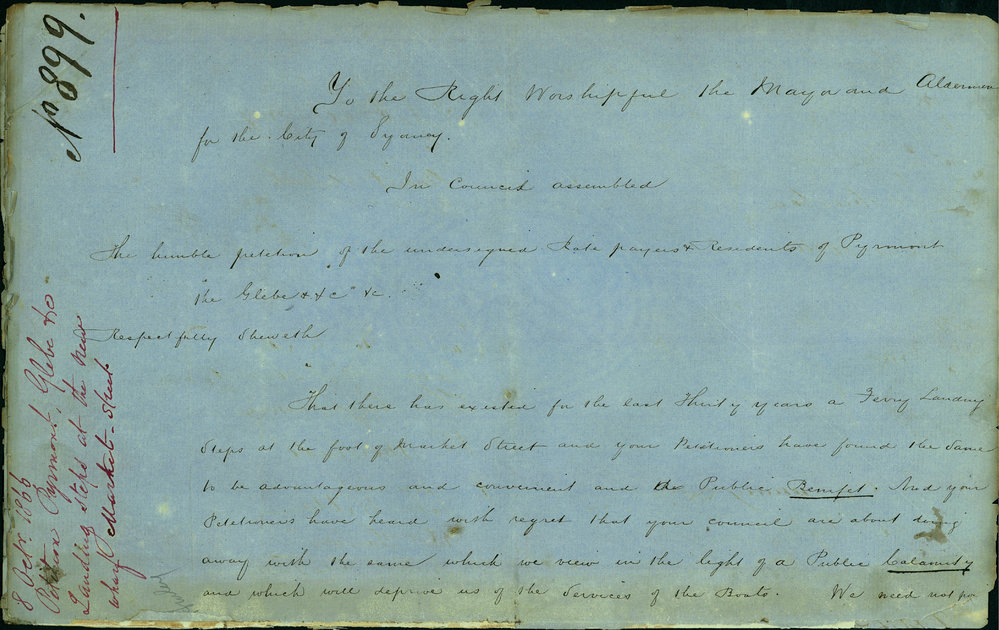 No 899.
8 Octr. 1866
Petition Pyrmont, Glebe &c
Landing steps at the New
wharf Market-Street
To the Right Worshipful the Mayor and Aldermen
for the City of Sydney.
In Council assembled
The humble petition of the undersigned Rate payers & Residents of Pyrmont
"the Glebe & &c" &c.
Respectfully Sheweth
That there has existed for the last Thirty years a Ferry Landing
Steps at the foot of Market Street and your Petitioners have found the same
to be advantageous and convenient and a Public Benifet. And your
Petitioners have heard with regret that your council are about doing
away with the same which we view in the light of a Public Calamity
and which will deprive us of the Services of the Boats. We need not